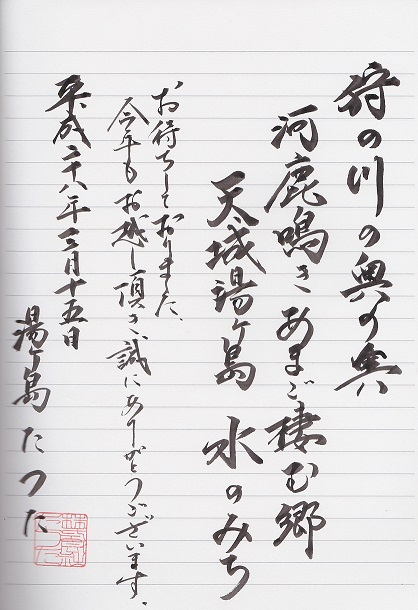 狩の川の奥の奥
河鹿鳴きあまご棲む郷
天城湯ヶ島 水のみち
お待ちしておりました、
今年もお越し頂き誠にありがとうございます。
平成二十八年三月十五日
湯ヶ島 たつた